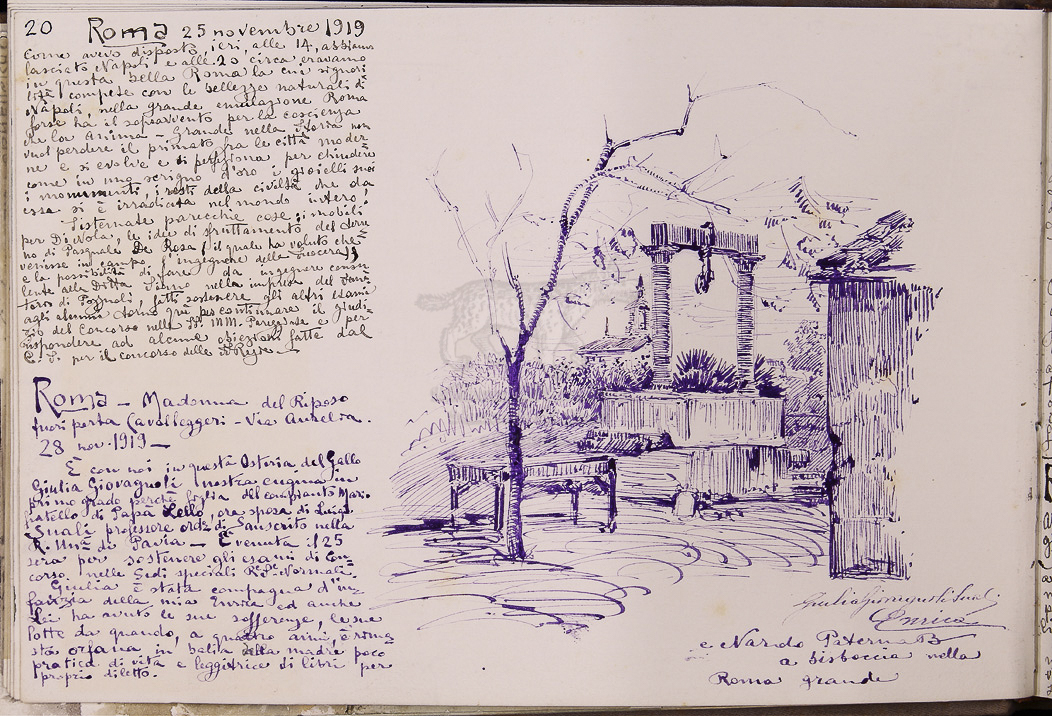 20 Roma 25 novembre 1919
Come avevo disposto, ieri, alle 14, abbiamo
lasciato Napoli e alle 20 circa eravamo
in questa bella Roma la cui signori-
lità compete con le bellezze naturali di
Napoli, nella grande emulazione Roma
forse ha il sopravvento per la coscienza
che la anima - Grande nella Storia non
vuol perdere il primato fra le città moder-
ne e si evolve e si perfeziona per chiudere
come in uno scrigno d'oro i gioielli suoi
i monumenti, i resti della civiltà che da
essa si è irradiata nel mondo intero.
Sistemate parecchie cose; i mobili
per Di Nola, le idee di sfruttamento del terre-
no di Pasquale De Rosa (il quale ha voluto che
venisse in campo l'ingegnere della
e la possibilità di fare da ingegnere consu-
lente alla Ditta Sarno nella impresa del
di Pozzuoli, fatti sostenere gli altri esami
agli alunni torno qui per continuare il giudi-
zio del Concorso nelle SS. MM. Pareggiate e per
rispondere ad alcune obiezioni fatte dal
C. S. per il concorso delle
Roma - Madonna del Riposo
fuori porta Cavalleggeri - Via Aurelia.
28 nov. 1919 -
È con noi in questa Osteria del Gallo
Giulia Giovagnoli nostra cugina in
primo grado perchè figlia del compianto Mario
fratello di Papà Lello, ora sposa di Luigi
Suali professore ord. di Sanscrito nella
R. Unà di Pavia - È venuta il 25
sera per sostenere gli esami di Con-
corso nelle Sedi speciali Normali.
Giulia è stata compagna d'in-
fanzia della mia Enrica ed anche
Lei ha avuto le sue sofferenze, le sue
lotte da quando, a quattro anni, è rima-
sta orfana in balia della madre poco
pratica di vita e leggitrice di libri per
proprio diletto.
Giulia Giovagnoli Suali
Enrica
e Nardo Paterna B
a bisboccia nella
Roma grande